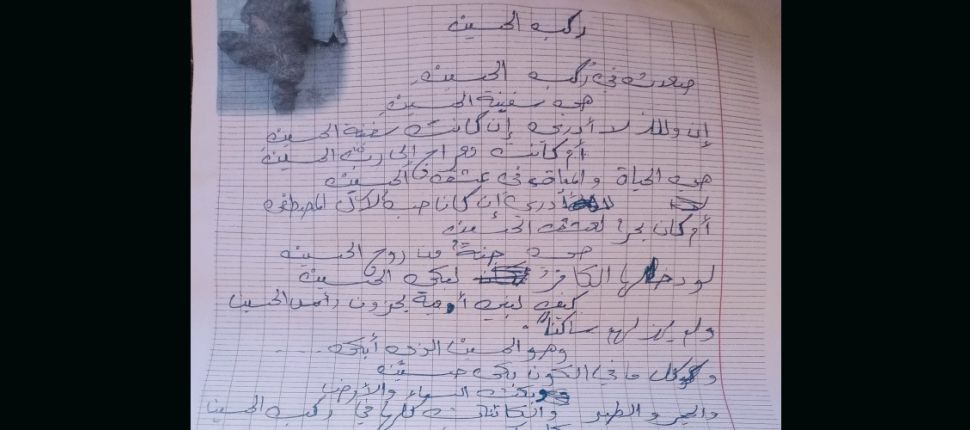 ركب الحسين
صعدت في ركب الحسين
هي سفينة الحسين
إن والله لا أدري إن كانت سفينة الحسين
أم كانت معراج إلى رب الحسين
هي الحياة والمباقي في عشق الحسين
أدري إن كان حب لآل المصطفى
أم كان بحرا لعشق الحسين
هي جنة من روح الحسين
لو دخلها الكافر لبكى الحسين
كيف لبني أمية يحزون رأس الحسين
ولم يرز لهم ساكنا
وهو الحسين الذي أبكى....
وكل ما في الكون بكى حسين
بكته السماء والأرض
والطير والكائنات كلها في ركب الحسين